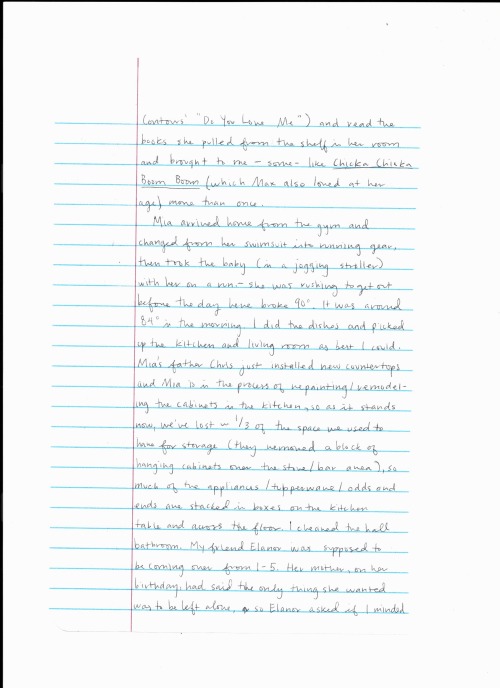 Contours' "Do You Love Me") and read the
books she pulled from the shelf in her room
and brought to me - some - like Chicka Chicka
Boom Boom (which Max also loved at her
age) more than once.
Mia arrived home from the gym and
changed from her swimsuit into running gear,
then took the baby (in a jogging stroller)
with her on a run - she was rushing to get out
before the day here broke 90°. It was around
84° in the morning. I did the dishes and picked
up the kitchen and living room as best I could.
Mia's father Chris just installed new countertops
and Mia is in the process of repainting/remodel-
ing the cabinets in the kitchen, so as it stands
now, we've lost ~ 1/3 of the space we used to
have for storage (they removed a block of
hanging cabinets over the stove/bar area), so
much of the appliances/tupperware/odds and
ends are stacked in boxes on the kitchen
table and across the floor. I cleaned the hall
bathroom. My friend Elanor was supposed to
be coming over from 1-5. Her mother, on her
birthday, had said the only thing she wanted
was to be left alone, so Elanor asked if I minded